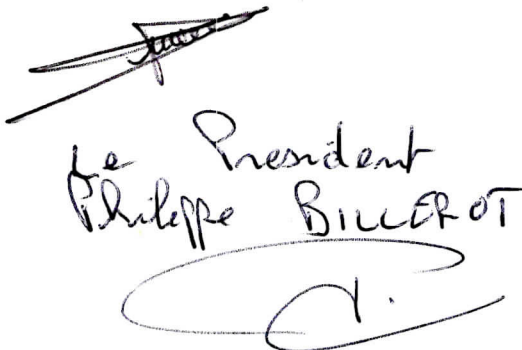 Le President
Philippe BILLEROT